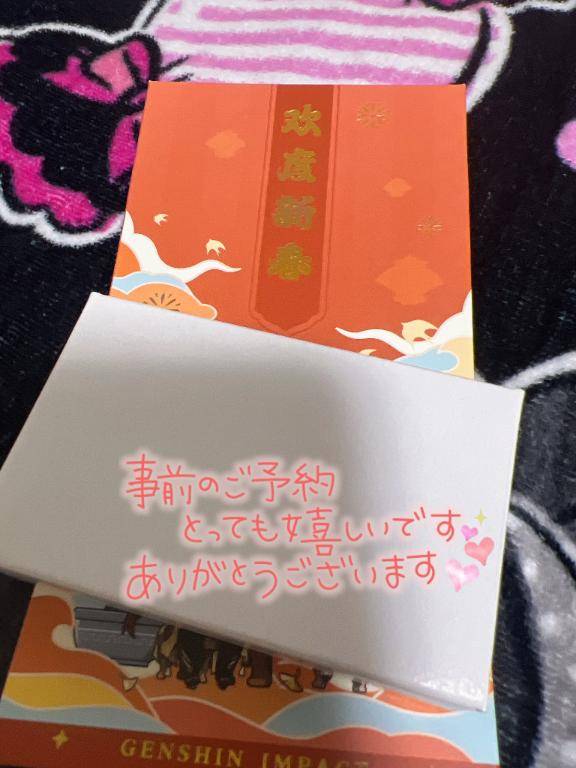 欢度新春
事前のご予約
とっても嬉しいです
ありがとうございます
GENSHIN IMPACT